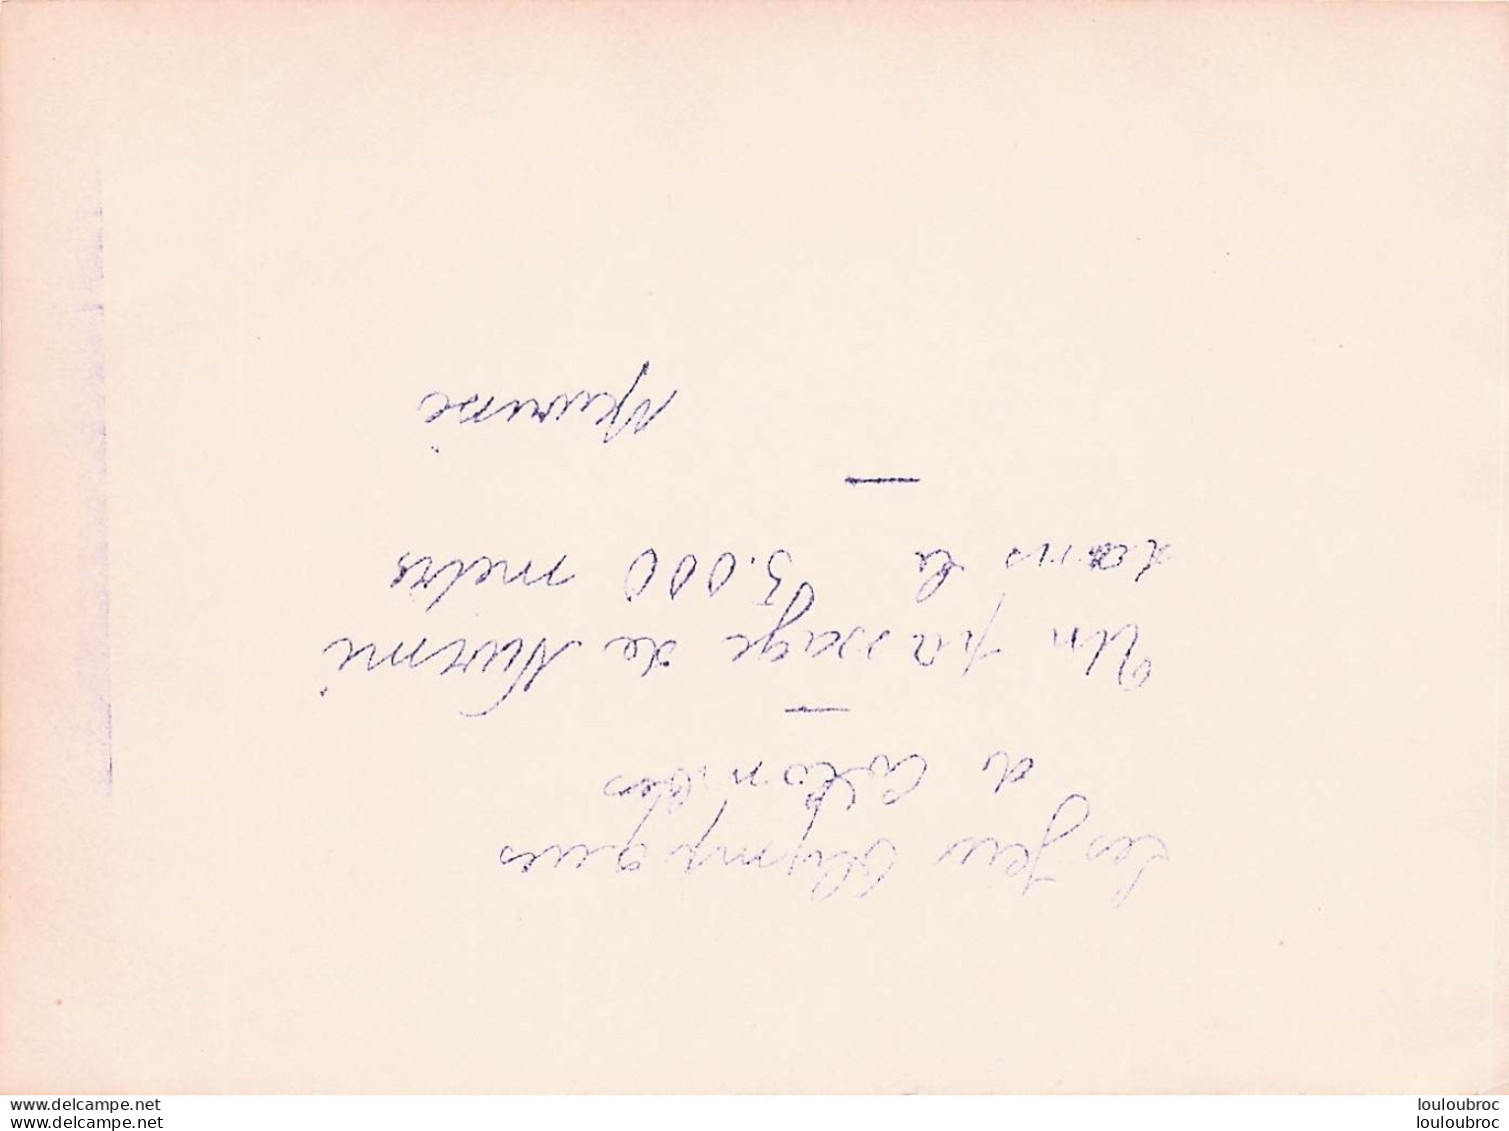 Les Jeux Olympiques
de Colombes
—
Un passage de Nurmi
dans le 5.000 metres
—
www.delcampe.net
www.delcampe.net
louloubroc
louloubroc